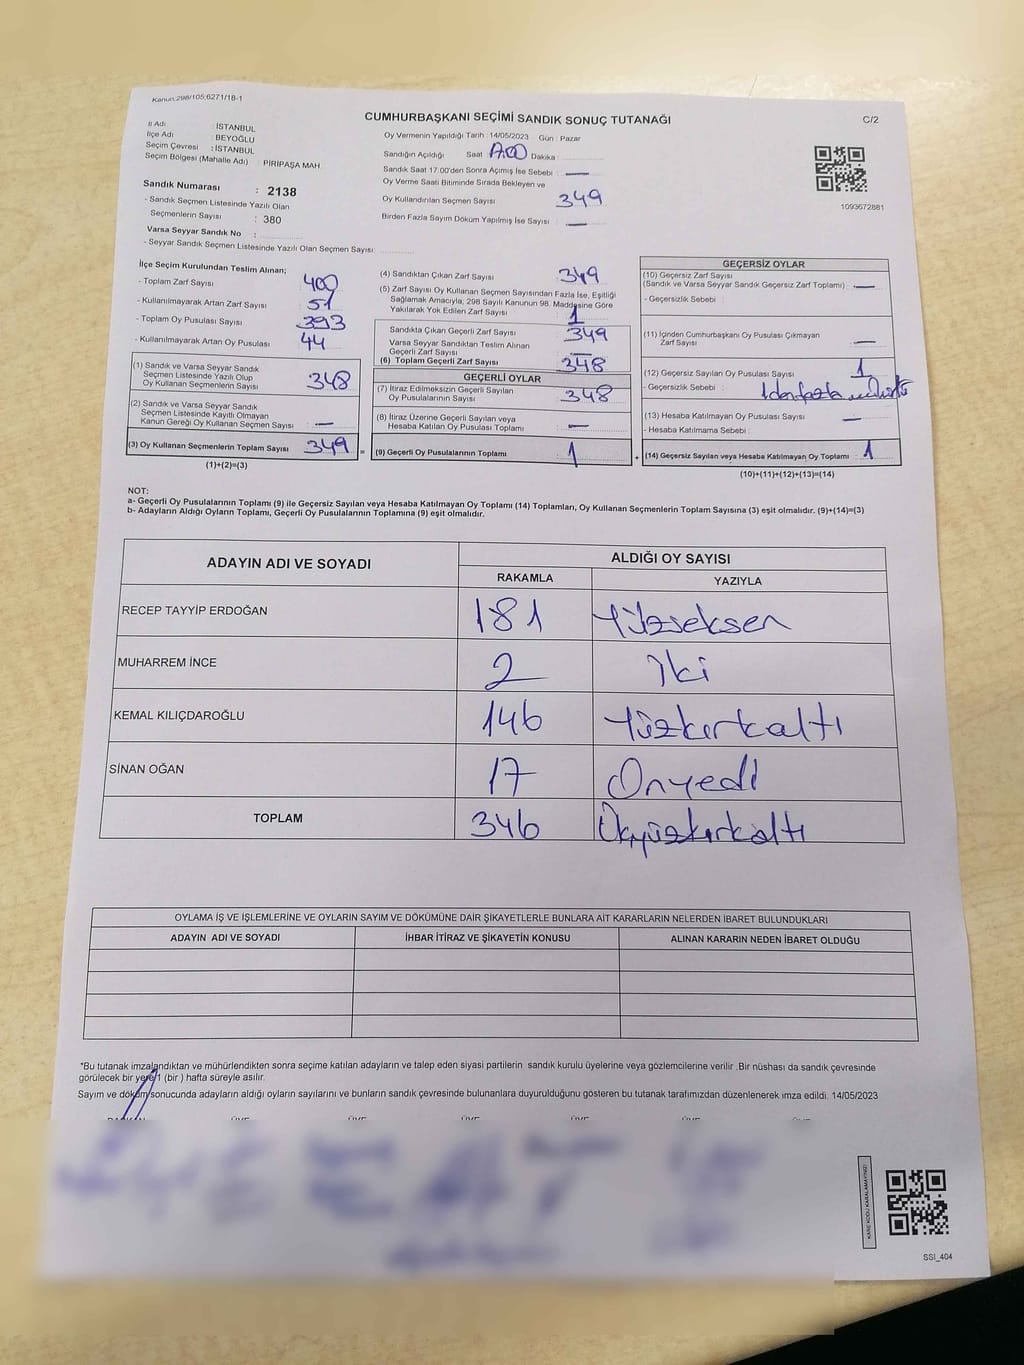 Kanun:298/105,6271/18-1
CUMHURBAŞKANI SEÇİMİ SANDIK SONUÇ TUTANAĞI
C/2
İl Adı : İSTANBUL
İlçe Adı : BEYOĞLU
Seçim Çevresi : İSTANBUL
Seçim Bölgesi (Mahalle Adı) : PİRİPAŞA MAH.
Sandık Numarası : 2138
- Sandık Seçmen Listesinde Yazılı Olan
Seçmenlerin Sayısı : 380
Varsa Seyyar Sandık No :
- Seyyar Sandık Seçmen Listesinde Yazılı Olan Seçmen Sayısı:
Oy Vermenin Yapıldığı Tarih : 14/05/2023 Gün : Pazar
Sandığın Açıldığı Saat 17.00 Dakika :
Sandık Saat 17.00'den Sonra Açımış İse Sebebi : —
Oy Verme Saati Bitiminde Sırada Bekleyen ve
Oy Kullandırılan Seçmen Sayısı : 349
Birden Fazla Sayım Döküm Yapılmış İse Sayısı : —
1093672881
İlçe Seçim Kurulundan Teslim Alınan;
- Toplam Zarf Sayısı : 400
- Kullanılmayarak Artan Zarf Sayısı : 51
- Toplam Oy Pusulası Sayısı : 393
- Kullanılmayarak Artan Oy Pusulası : 44
(1) Sandık ve Varsa Seyyar Sandık
Seçmen Listesinde Yazılı Olup
Oy Kullanan Seçmenlerin Sayısı : 348
(2) Sandık ve Varsa Seyyar Sandık
Seçmen Listesinde Kayıtlı Olmayan
Kanun Gereği Oy Kullanan Seçmen Sayısı : —
(3) Oy Kullanan Seçmenlerin Toplam Sayısı : 349
(1)+(2)=(3)
(4) Sandıktan Çıkan Zarf Sayısı : 349
(5) Zarf Sayısı Oy Kullanan Seçmen Sayısından Fazla İse, Eşitliği
Sağlamak Amacıyla, 298 Sayılı Kanunun 98. Maddesine Göre
Yakılarak Yok Edilen Zarf Sayısı : 1
Sandıkta Çıkan Geçerli Zarf Sayısı : 349
Varsa Seyyar Sandıktan Teslim Alınan
Geçerli Zarf Sayısı : —
(6) Toplam Geçerli Zarf Sayısı : 348
GEÇERLİ OYLAR
(7) İtiraz Edilmeksizin Geçerli Sayılan
Oy Pusulalarının Sayısı : 348
(8) İtiraz Üzerine Geçerli Sayılan veya
Hesaba Katılan Oy Pusulası Toplamı : —
(9) Geçerli Oy Pusulalarının Toplamı : 1
=
+
GEÇERSİZ OYLAR
(10) Geçersiz Zarf Sayısı
(Sandık ve Varsa Seyyar Sandık Geçersiz Zarf Toplamı) : —
- Geçersizlik Sebebi :
(11) İçinden Cumhurbaşkanı Oy Pusulası Çıkmayan
Zarf Sayısı : —
(12) Geçersiz Sayılan Oy Pusulası Sayısı : 1
- Geçersizlik Sebebi : 1den fazla
(13) Hesaba Katılmayan Oy Pusulası Sayısı : —
- Hesaba Katılmama Sebebi :
(14) Geçersiz Sayılan veya Hesaba Katılmayan Oy Toplamı : 1
(10)+(11)+(12)+(13)=(14)
NOT:
a- Geçerli Oy Pusulalarının Toplamı (9) ile Geçersiz Sayılan veya Hesaba Katılmayan Oy Toplamı (14) Toplamları, Oy Kullanan Seçmenlerin Toplam Sayısına (3) eşit olmalıdır. (9)+(14)=(3)
b- Adayların Aldığı Oyların Toplamı, Geçerli Oy Pusulalarının Toplamına (9) eşit olmalıdır.
ADAYIN ADI VE SOYADI
ALDIĞI OY SAYISI
RAKAMLA YAZIYLA
RECEP TAYYİP ERDOĞAN 181 Yüzseksen
MUHARREM İNCE 2 İki
KEMAL KILIÇDAROĞLU 146 Yüzkırkaltı
SİNAN OĞAN 17 Onyedi
TOPLAM 346 Üçyüzkırkaltı
OYLAMA İŞ VE İŞLEMLERİNE VE OYLARIN SAYIM VE DÖKÜMÜNE DAİR ŞİKAYETLERLE BUNLARA AİT KARARLARIN NELERDEN İBARET BULUNDUKLARI
ADAYIN ADI VE SOYADI İHBAR İTİRAZ VE ŞİKAYETİN KONUSU ALINAN KARARIN NEDEN İBARET OLDUĞU
*Bu tutanak imzalandıktan ve mühürlendikten sonra seçime katılan adayların ve talep eden siyasi partilerin sandık kurulu üyelerine veya gözlemcilerine verilir .Bir nüshası da sandık çevresinde
görülecek bir yere 1 (bir ) hafta süreyle asılır.
Sayım ve döküm sonucunda adayların aldığı oyların sayılarını ve bunların sandık çevresinde bulunanlara duyurulduğunu gösteren bu tutanak tarafımızdan düzenlenerek imza edildi. 14/05/2023
KARE KODU KARALAMAYINIZ!
SSI_404